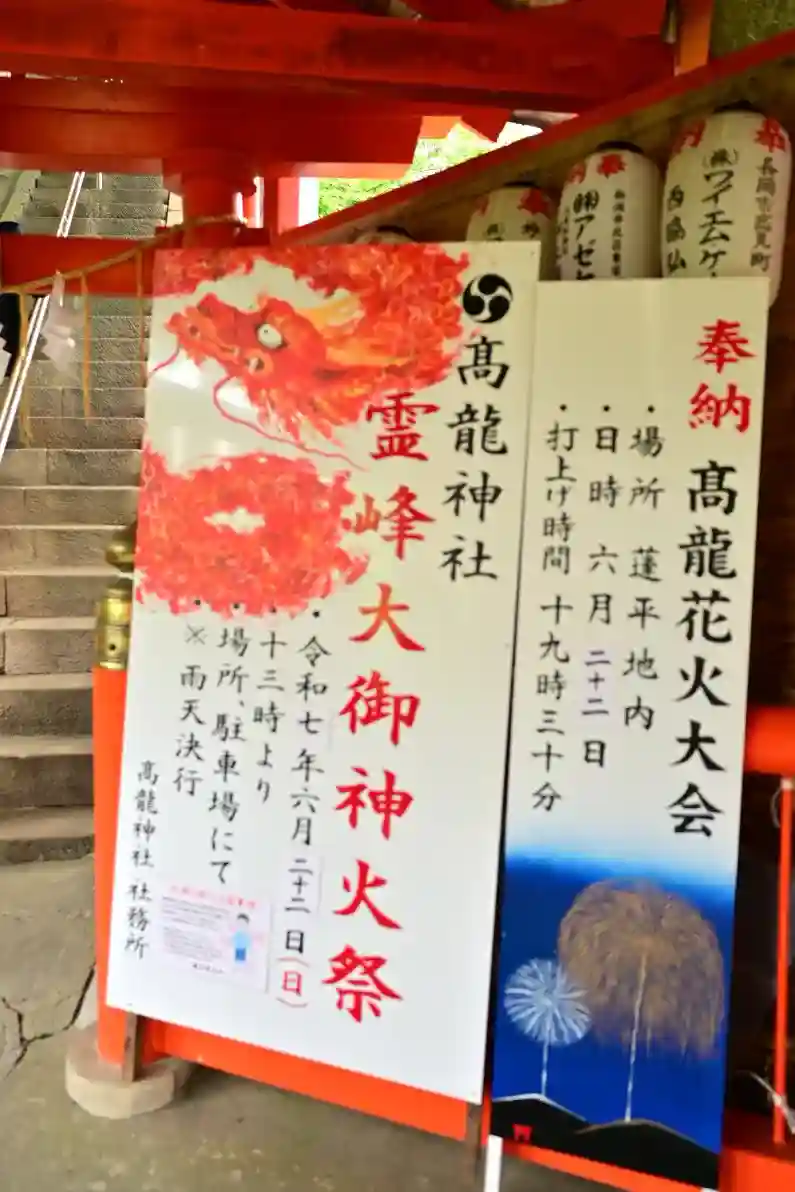 奉納
髙龍花火大会
・場所 蓬平地内
・日時 六月二十二日
・打上げ時間 十九時三十分
髙龍神社
霊峰大御神火祭
・令和七年六月二十二日(日)
・十三時より
・場所、駐車場にて
※雨天決行
髙龍神社 社務所
㈱アゼ
(株)ワイエムケ
長岡市